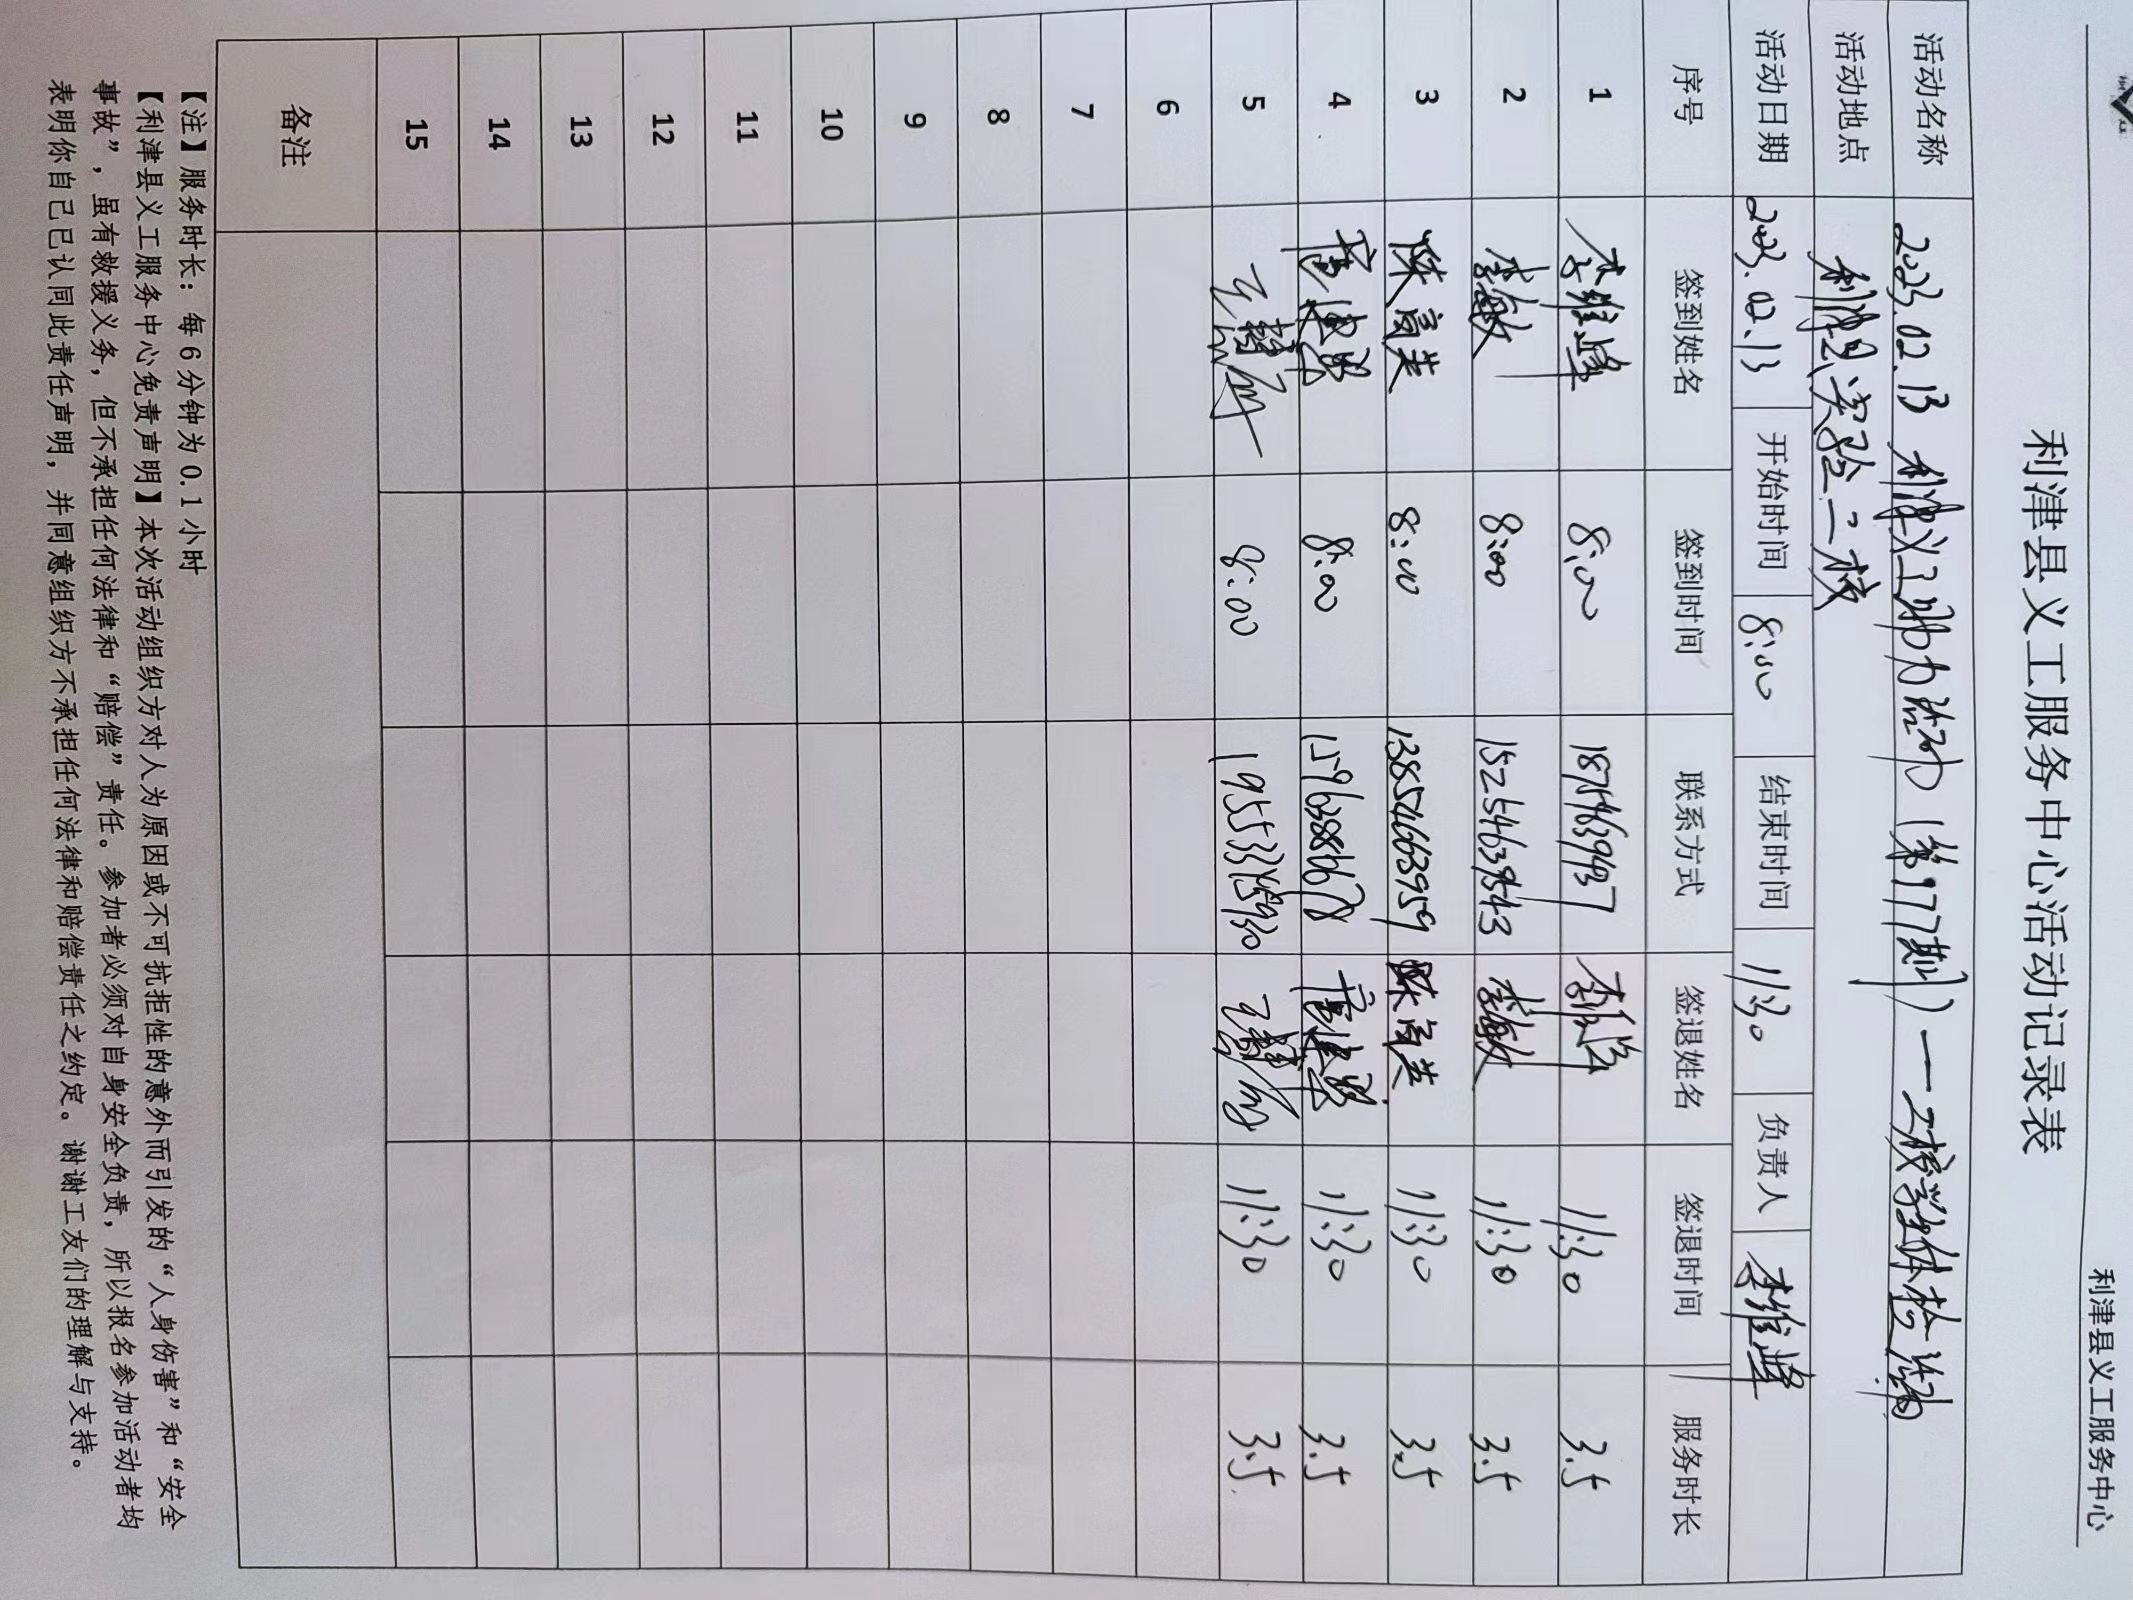 利津县义工服务中心
利津县义工服务中心活动记录表
活动名称 2023.02.13 利津义工助力活动（第177期）—二校学体检活动
活动地点 利津县实验二校
活动日期 2023.02.13 开始时间 8:00 结束时间 11:30 负责人 李维峰
序号 签到姓名 签到时间 联系方式 签退姓名 签退时间 服务时长
1 李维峰 8:00 李维峰 11:30 3.5
2 李敏 8:00 15254639543 李敏 11:30 3.5
3 陈富英 8:00 13854663959 陈富英 11:30 3.5
4 8:00 11:30 3.5
5 8:00 11:30 3.5
6
7
8
9
10
11
12
13
14
15
备注
【注】服务时长：每6分钟为0.1小时
【利津县义工服务中心免责声明】本次活动组织方对人为原因或不可抗拒性的意外而引发的“人身伤害”和“安全
事故”，虽有救援义务，但不承担任何法律和“赔偿”责任。参加者必须对自身安全负责，所以报名参加活动者均
表明你自己已认同此责任声明，并同意组织方不承担任何法律和赔偿责任之约定。谢谢工友们的理解与支持。